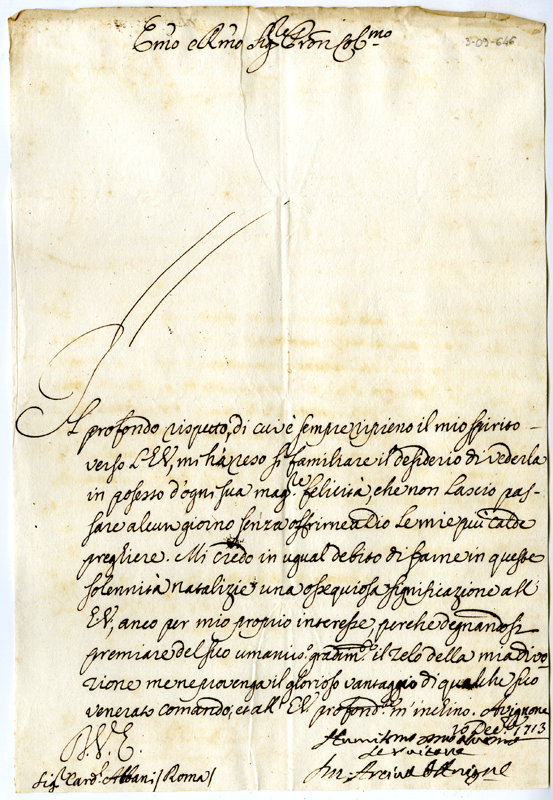 Emo e Rmo Sigre Pron Colmo
3-09-646
Il profondo rispetto, di cui è sempre ripieno il mio spirito
verso L'EV, mi hà reso sì familiare il desiderio di vederla
in posesto d'ogni sua magre felicità, che non Lascio pas-
sare alcun giorno senza offrirne a Dio Le mie più calde
preghiere. Mi credo in ugual debito di farne in queste
solennità natalizie una ossequiosa significazione all'
EV, anco per mio proprio interesse, perche degnandosi
premiare del suo umaniso gradimto il zelo della mia divo
zione me ne provenga il glorioso vantaggio di qualche suo
venerato comando; et all' EV profondte m'inchino. Avignone
10 Decbre 1713
D. V. E.
Sigr Card. Albani / Roma /
Servitore